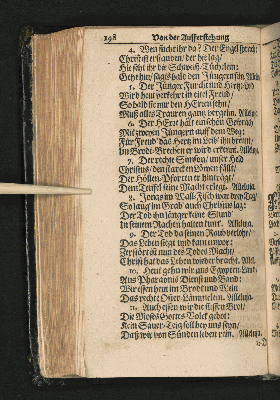 198 Von der Aufferstehung
4. Wen sucht ihr da? Der Engel sprach:
Christ ist erstanden/ der hie lag/
Hie seht ihr die Schweiß-Tüchelein:
Geht hin/ sagts bald den Jüngern sein. Alle.
5. Der Jünger Furcht und Hertzleid
Wird heut verkehrt in eitel Freud/
So bald sie nur den HErren sehn/
Muß alles Trauren gantz vergehn. Allel.
6. Der HErr hält ein schön Gespräch
Mit zweyen Jüngern auff dem Weg:
Für Freud das Hertz im Leib ihn brennt/
Im Brodt-Brechen er wird erkennt. Allel.
7. Der rechte Simson/ unser Held
Christus/ den starcken
Der Höllen-Pforten er hinträgt/
Dem Teuffel seine Macht erlegt. Alleluja.
8. Jonas im Wall-Fisch war drey Tag/
So lang im Grab auch Christus lag:
Der Tod ihn länger keine Stund
In seinem Rachen halten kunt. Alleluja.
9. Der Tod da seinen Raub verlohr/
Das Leben siegt und kam empor:
Zerstört ist nun des Todes Macht/
Christ hat das Leben wieder bracht. Allel.
10. Heut gehn wir aus Egypten-Land
Aus Pharaonis Dienst und Band:
Wir essen heut im Brodt und Wein
Das recht Oster-Lämmelein. Alleluja.
11. Auch essen wir die süssen Brot/
Die Moses Gottes Volck gebot:
Kein Sauer-Teig soll bey uns seyn/
Daß wir von Sünden leben rein. Alleluja.